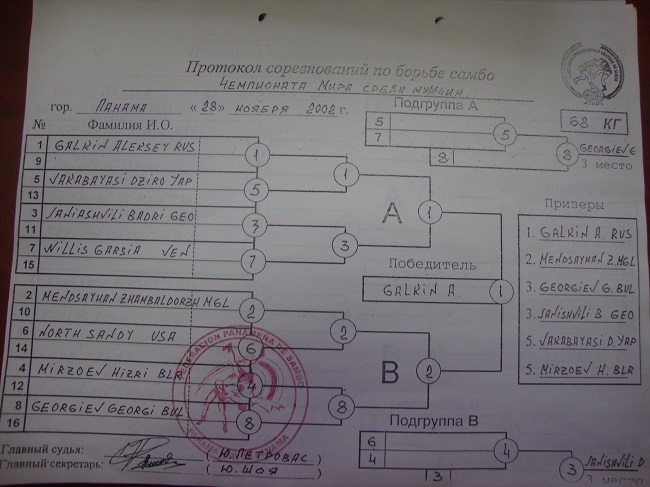 Протокол соревнований по борьбе самбо
ЧЕМПИОНАТА МИРА СРЕДИ МУЖЧИН
гор. ПАНАМА «28» НОЯБРЯ 2002 г.
Подгруппа А
68 КГ
5
7
5
8
8
GEORGIEV G
3 место
№ Фамилия И.О.
1 GALKIN ALEKSEY RUS
9
5 VAKABAYASI DZIRO YAP
13
3 JANIASHVILI BADRI GEO
11
7 WILLIS GARSIA VEN
15
1
5
3
7
1
3
А
1
Победитель
GALKIN A.
1
2 MENDSAYHAN ZHANBALDORZH MGL
10
6 NORTH SANDY USA
14
4 MIRZOEV HIZRI BLR
12
8 GEORGIEV GEORGI BUL
16
2
6
4
8
2
8
В
2
Призеры
1. GALKIN A. RUS
2. MENDSAYHAN Z. MGL
3. GEORGIEV G. BUL
3. JANISHVILI B GEO
5. VAKABAYASI D. YAP
5. MIRZOEV H. BLR
FEDERACION PANAMENA DE SAMBO
PANAMA
Подгруппа В
6
4
4
3
3
JANISHVILI
3 место
Главный судья: (Ю. ПЕТРОВАС)
Главный секретарь: (Ю. ШОЯ)